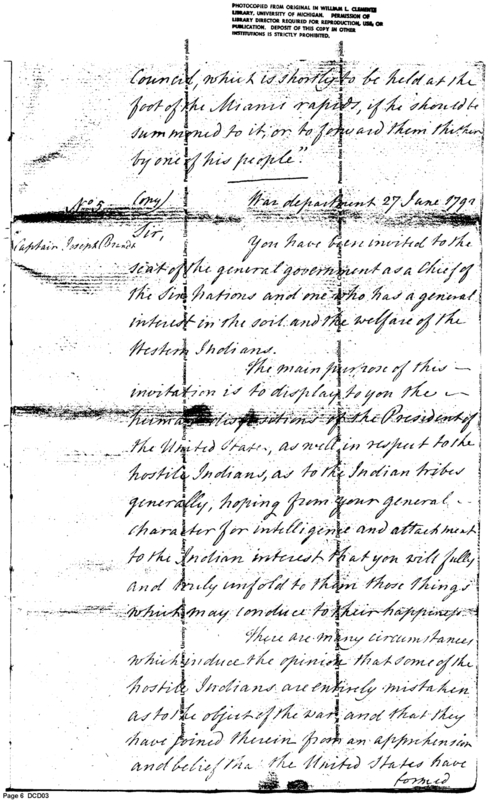 PHOTOCOPIED FROM ORIGINAL IN WILLIAM L. CLEMENTS
LIBRARY, UNIVERSITY OF MICHIGAN. PERMISSION OF
LIBRARY DIRECTOR REQUIRED FOR REPRODUCTION, USE, OR
PUBLICATION. DEPOSIT OF THIS COPY IN OTHER
INSTITUTIONS IS STRICTLY PROHIBITED.
Council, which is shortly to be held at the
foot of the Miami rapids, if he should be
summoned to it, or to forward them thither
by one of his people".
No. 5 (Copy) War department 27 June 1792
Captain Joseph Brandt Sir,
You have been invited to the
seat of the general government as a Chief of
the six Nations and one who has a general
interest in the soil and the welfare of the
Western Indians.
The main purpose of this —
invitation is to display to you the —
human dispositions of the President of
the United States, as well in respect to the
hostile Indians, as to the Indian tribes
generally, hoping from your general —
character for intelligence and attachment
to the Indian interest that you will fully
and truly unfold to them those things
which may conduce to their happiness.
There are many circumstances
which induce the opinion that some of the
hostile Indians are entirely mistaken
as to the object of the war, and that they
have joined therein from an apprehension
and belief that the United States have
formed
Page 6 DCD03